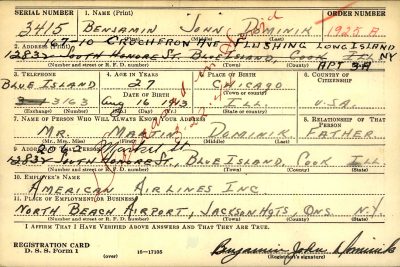 SERIAL NUMBER 1. NAME (Print) ORDER NUMBER
3415 BENJAMIN JOHN DOMINIK 1925 A
(First) (Middle) (Last)
67-10 CROCHERON AVE FLUSHING LONG ISLAND
2. ADDRESS (Print) NY
12832 SOUTH HONORE ST. BLUE ISLAND, COOK ILL
(Number and street or R. F. D. number) (Town) (County) (State)
APT 3A
3. TELEPHONE 4. AGE IN YEARS 5. PLACE OF BIRTH 6. COUNTRY OF CITIZENSHIP
BLUE ISLAND 27 CHICAGO
DATE OF BIRTH (Town or county)
3163 Aug 16 1913 ILL. U.S.A.
(Exchange) (Number) (Mo.) (Day) (Yr.) (State or country)
7. NAME OF PERSON WHO WILL ALWAYS KNOW YOUR ADDRESS 8. RELATIONSHIP OF THAT PERSON
MR. MARTIN DOMINIK FATHER
(Mr., Mrs., Miss) (First) (Middle) (Last)
Market St
9. ADDRESS OF THAT PERSON
12832 SOUTH HONORE ST., BLUE ISLAND, COOK ILL
(Number and street or R. F. D. number) (Town) (County) (State)
10. EMPLOYER'S NAME
AMERICAN AIRLINES INC
11. PLACE OF EMPLOYMENT OR BUSINESS
NORTH BEACH AIRPORT, JACKSON HGTS, QNS. N.Y.
(Number and street or R. F. D. number) (Town) (County) (State)
I AFFIRM THAT I HAVE VERIFIED ABOVE ANSWERS AND THAT THEY ARE TRUE.
REGISTRATION CARD
D. S. S. Form 1 16—17105 Benjamin John Dominik
(over) (Registrant's signature)